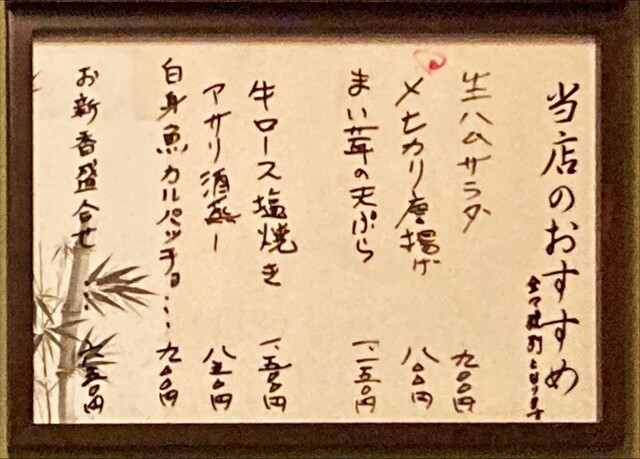 当店のおすすめ
全て税別となります
生ハムサラダ 九〇〇円
メヒカリ唐揚げ 八〇〇円
まい茸の天ぷら 一、一五〇円
牛ロース塩焼き 一、五〇〇円
アサリ酒蒸し 八五〇円
白身魚カルパッチョ… 九〇〇円
お新香盛合せ… 六五〇円